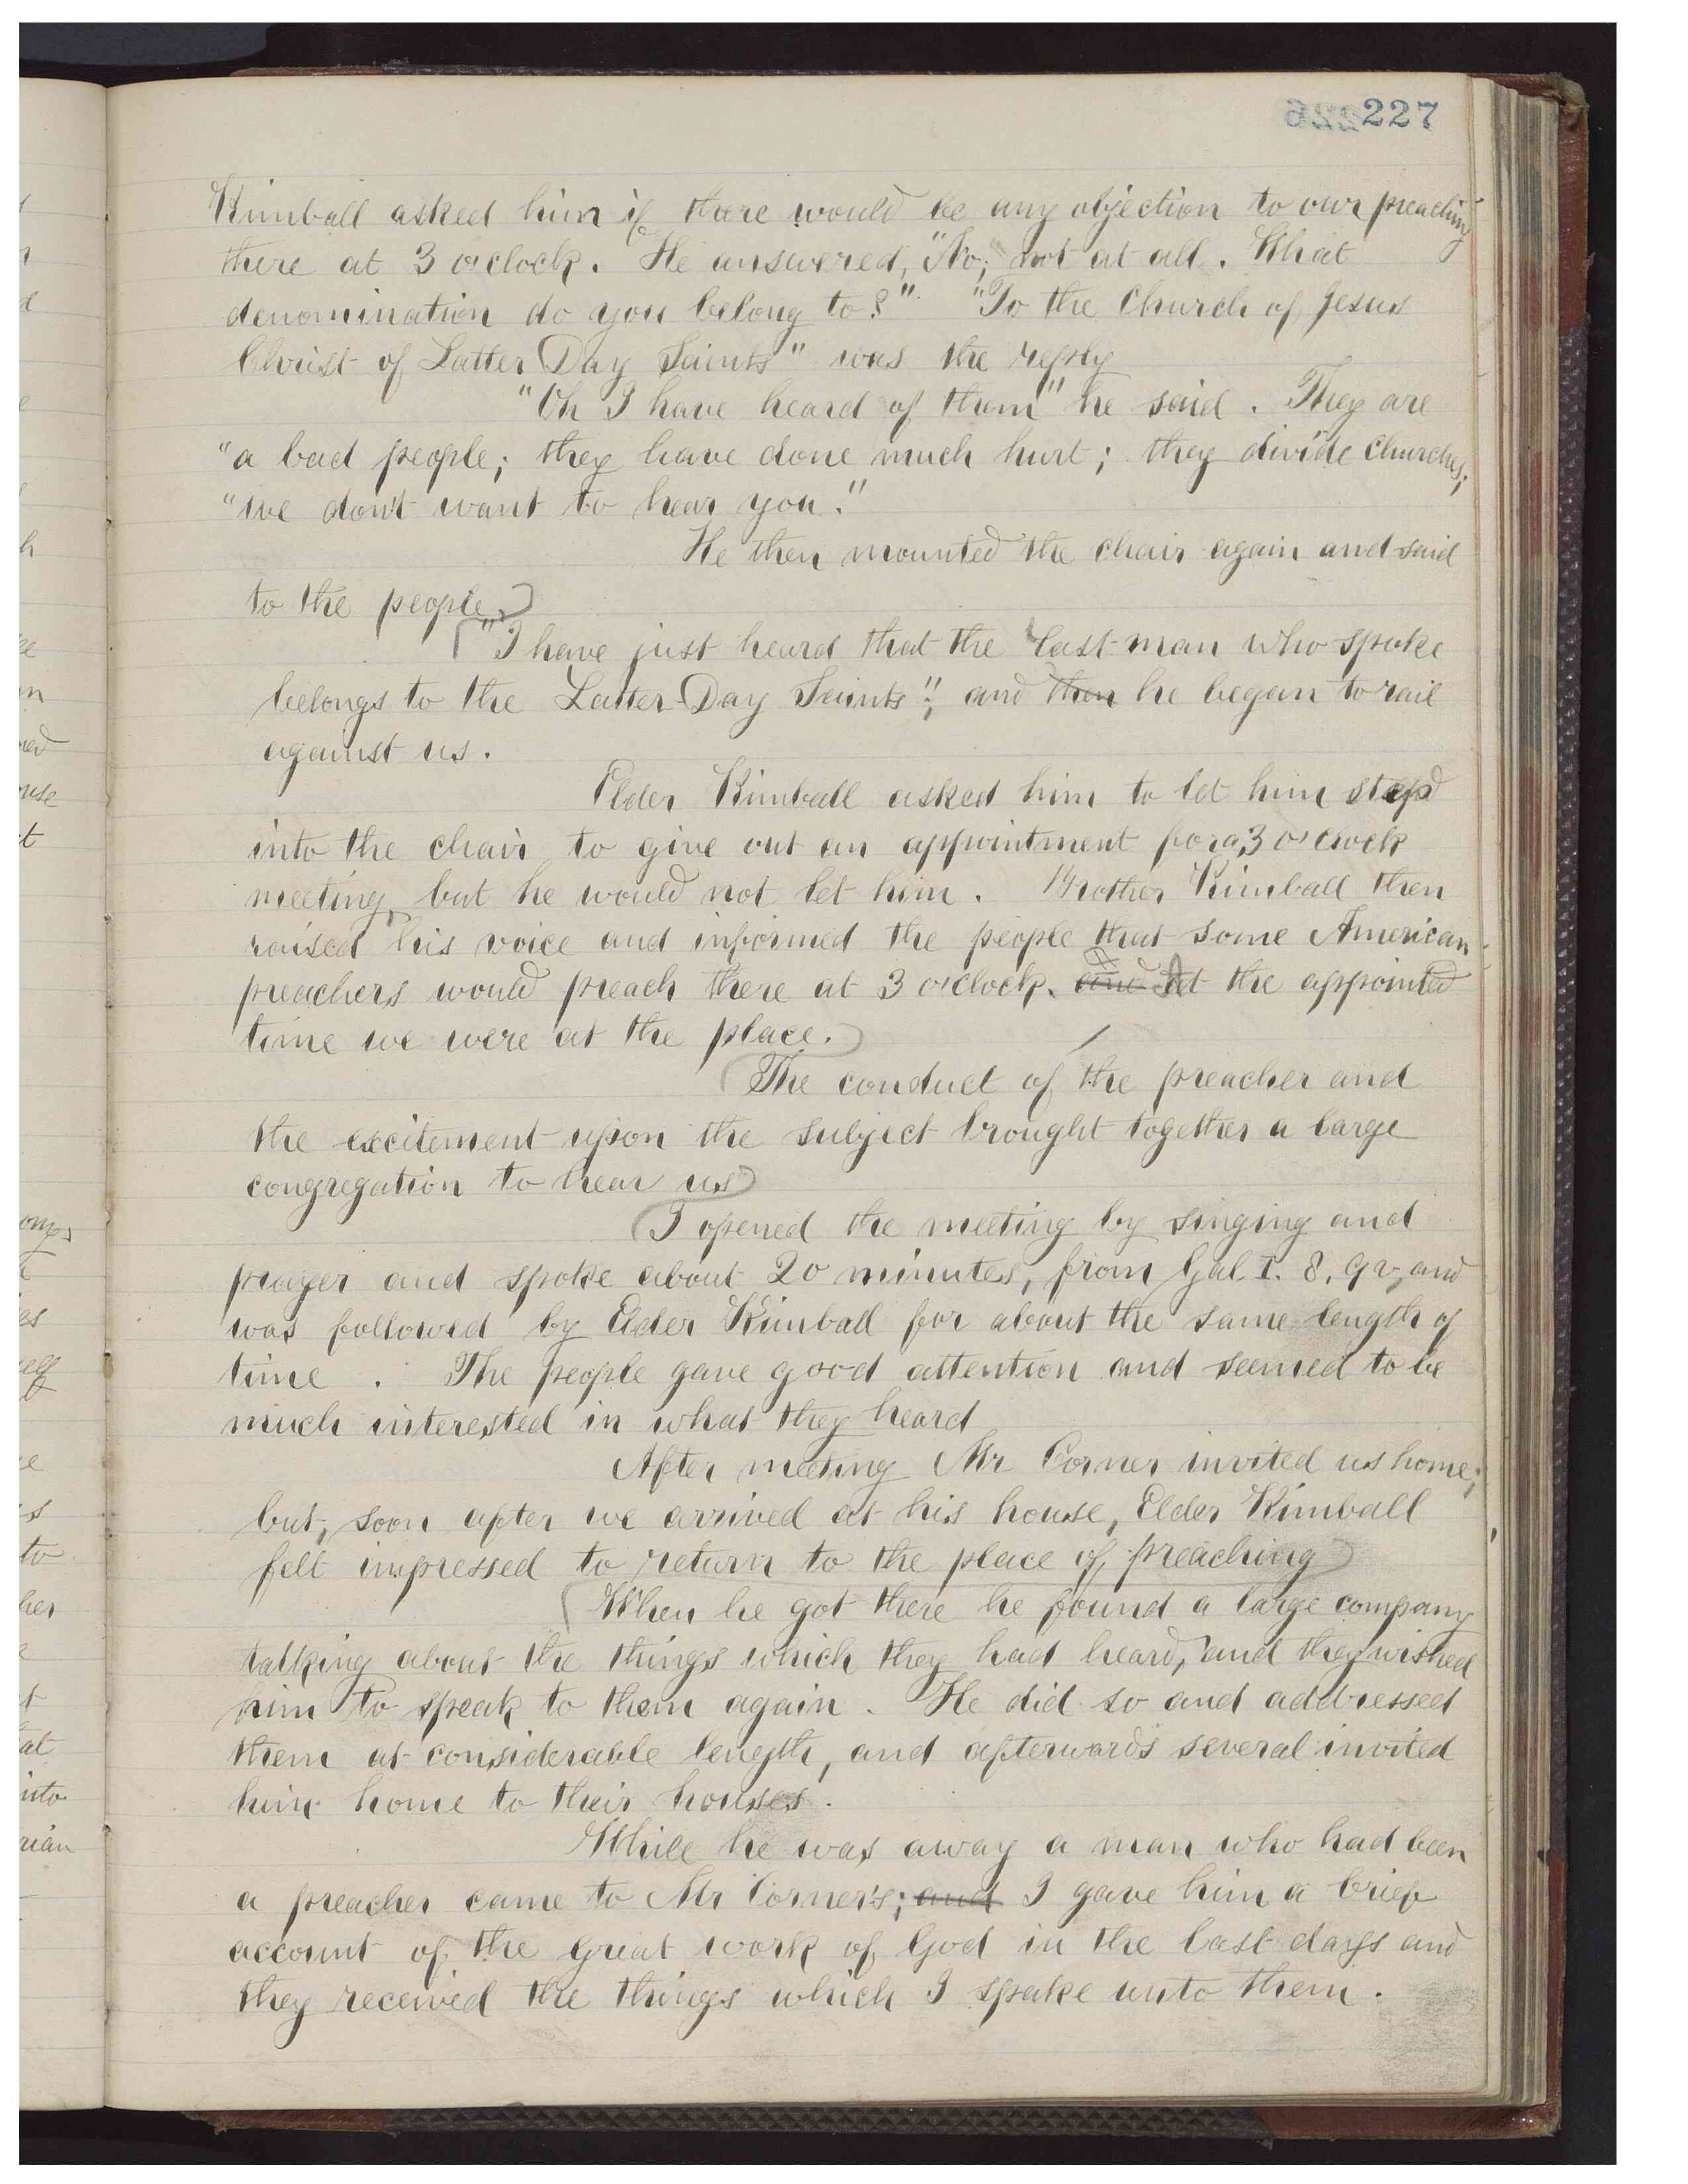 227
Kimball asked him if there would be any objection to our preaching
there at 3 o'clock. He answered, "No; not at all. What
denomination do you belong to?" "To the Church of Jesus
Christ of Latter Day Saints" was the reply
"Oh I have heard of them" he said. They are
"a bad people; they have done much hurt; they divide churches;
"we don't want to hear you."
He then mounted the chair again and said
to the people
"I have just heard that the last man who spoke
belongs to the Latter-Day Saints"; and then he began to rail
against us.
Elder Kimball asked him to let him step
into the chair to give out an appointment for a 3 o'clock
meeting, but he would not let him. Brother Kimball then
raised his voice and informed the people that some American
preachers would preach there at 3 o'clock. and At the appointed
time we were at the place.
The conduct of the preacher and
the excitement upon the subject brought together a large
congregation to hear us
I opened the meeting by singing and
prayer and spoke about 20 minutes, from Gal. I. 8, 9 v, and
was followed by Elder Kimball for about the same length of
time. The people gave good attention and seemed to be
much interested in what they heard
After meeting Mr Corner invited us home;
but, soon after we arrived at his house, Elder Kimball
felt impressed to return to the place of preaching
When he got there he found a large company
talking about the things which they had heard, and they wished
him to speak to them again. He did so and addressed
them at considerable length, and afterwards several invited
him home to their houses.
While he was away a man who had been
a preacher came to Mr Corner's; and I gave him a brief
account of the great work of God in the last days and
they received the things which I spake unto them.